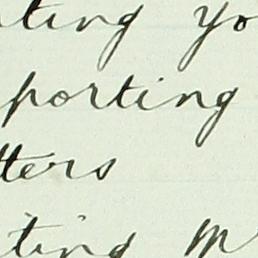 ting yo
porting
tters
ting M